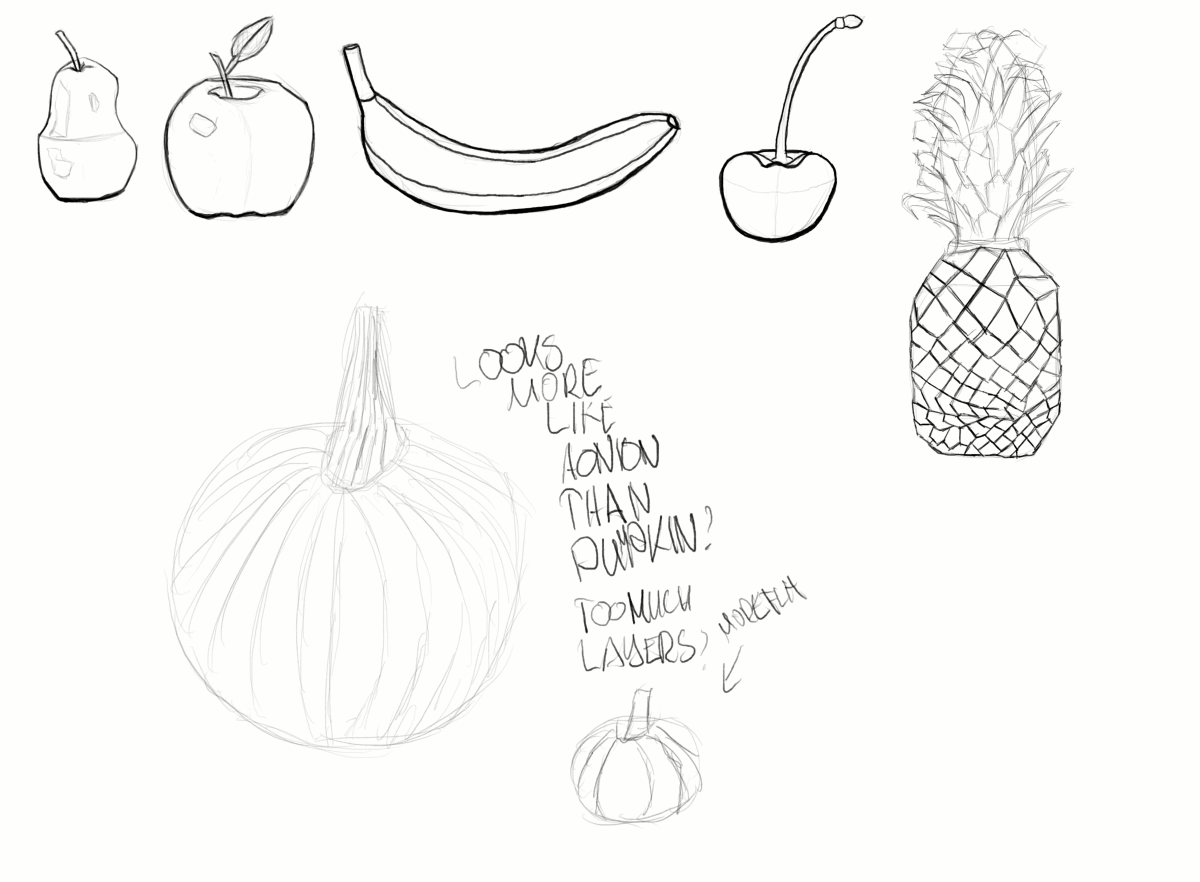 LOOKS
MORE
LIKE
A ONION
THAN
PUMPKIN?
TOO MUCH
LAYERS?